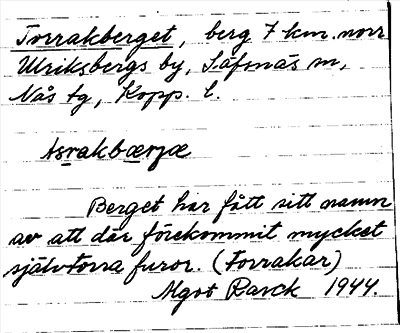 Torrakberget, berg 7 km. norr
Ulriksbergs by, Säfsnäs sn,
Nås tg, Kopp. l.
Berget har fått sitt namn
av att där förekommit mycket
självtorra furor. (Torrakar)
Algot Rasck 1944.